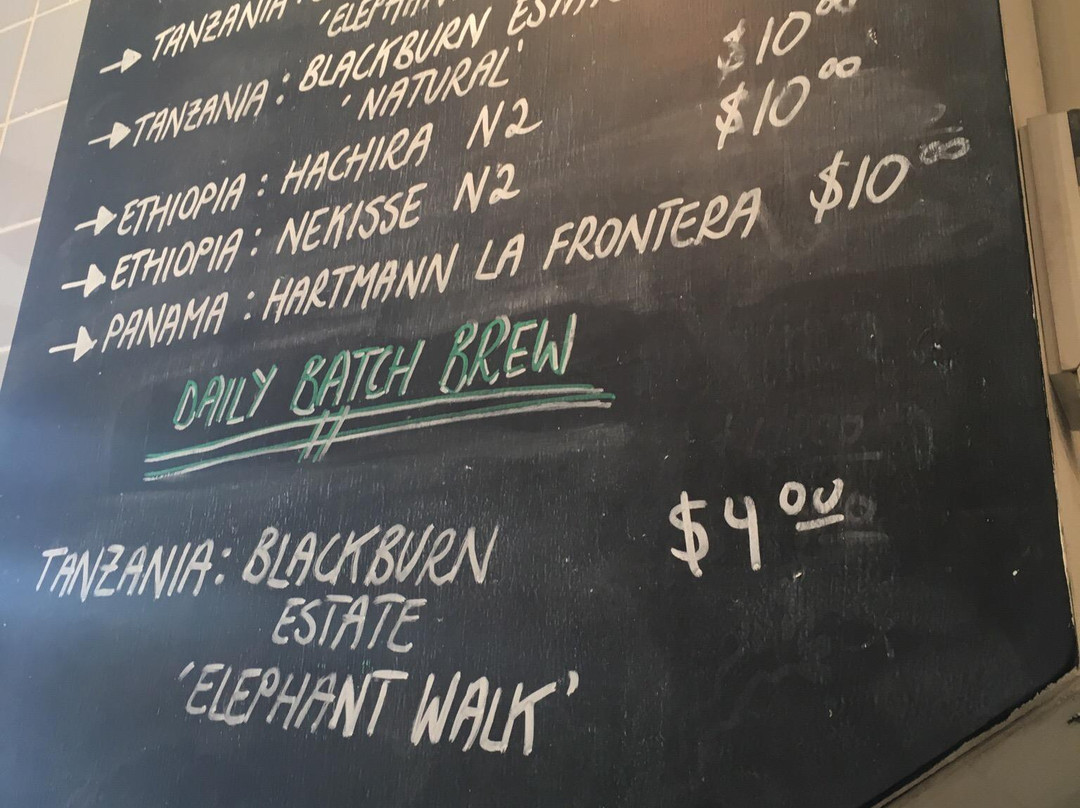 → TANZANIA:
'ELEPHAN
→ TANZANIA: BLACKBURN ESTA
'NATURAL'
→ ETHIOPIA: HACHIRA N2 $10.00
→ ETHIOPIA: NEKISSE N2 $10.00
→ PANAMA: HARTMANN LA FRONTERA $10.00
DAILY BATCH BREW
TANZANIA: BLACKBURN $4.00
ESTATE
'ELEPHANT WALK'